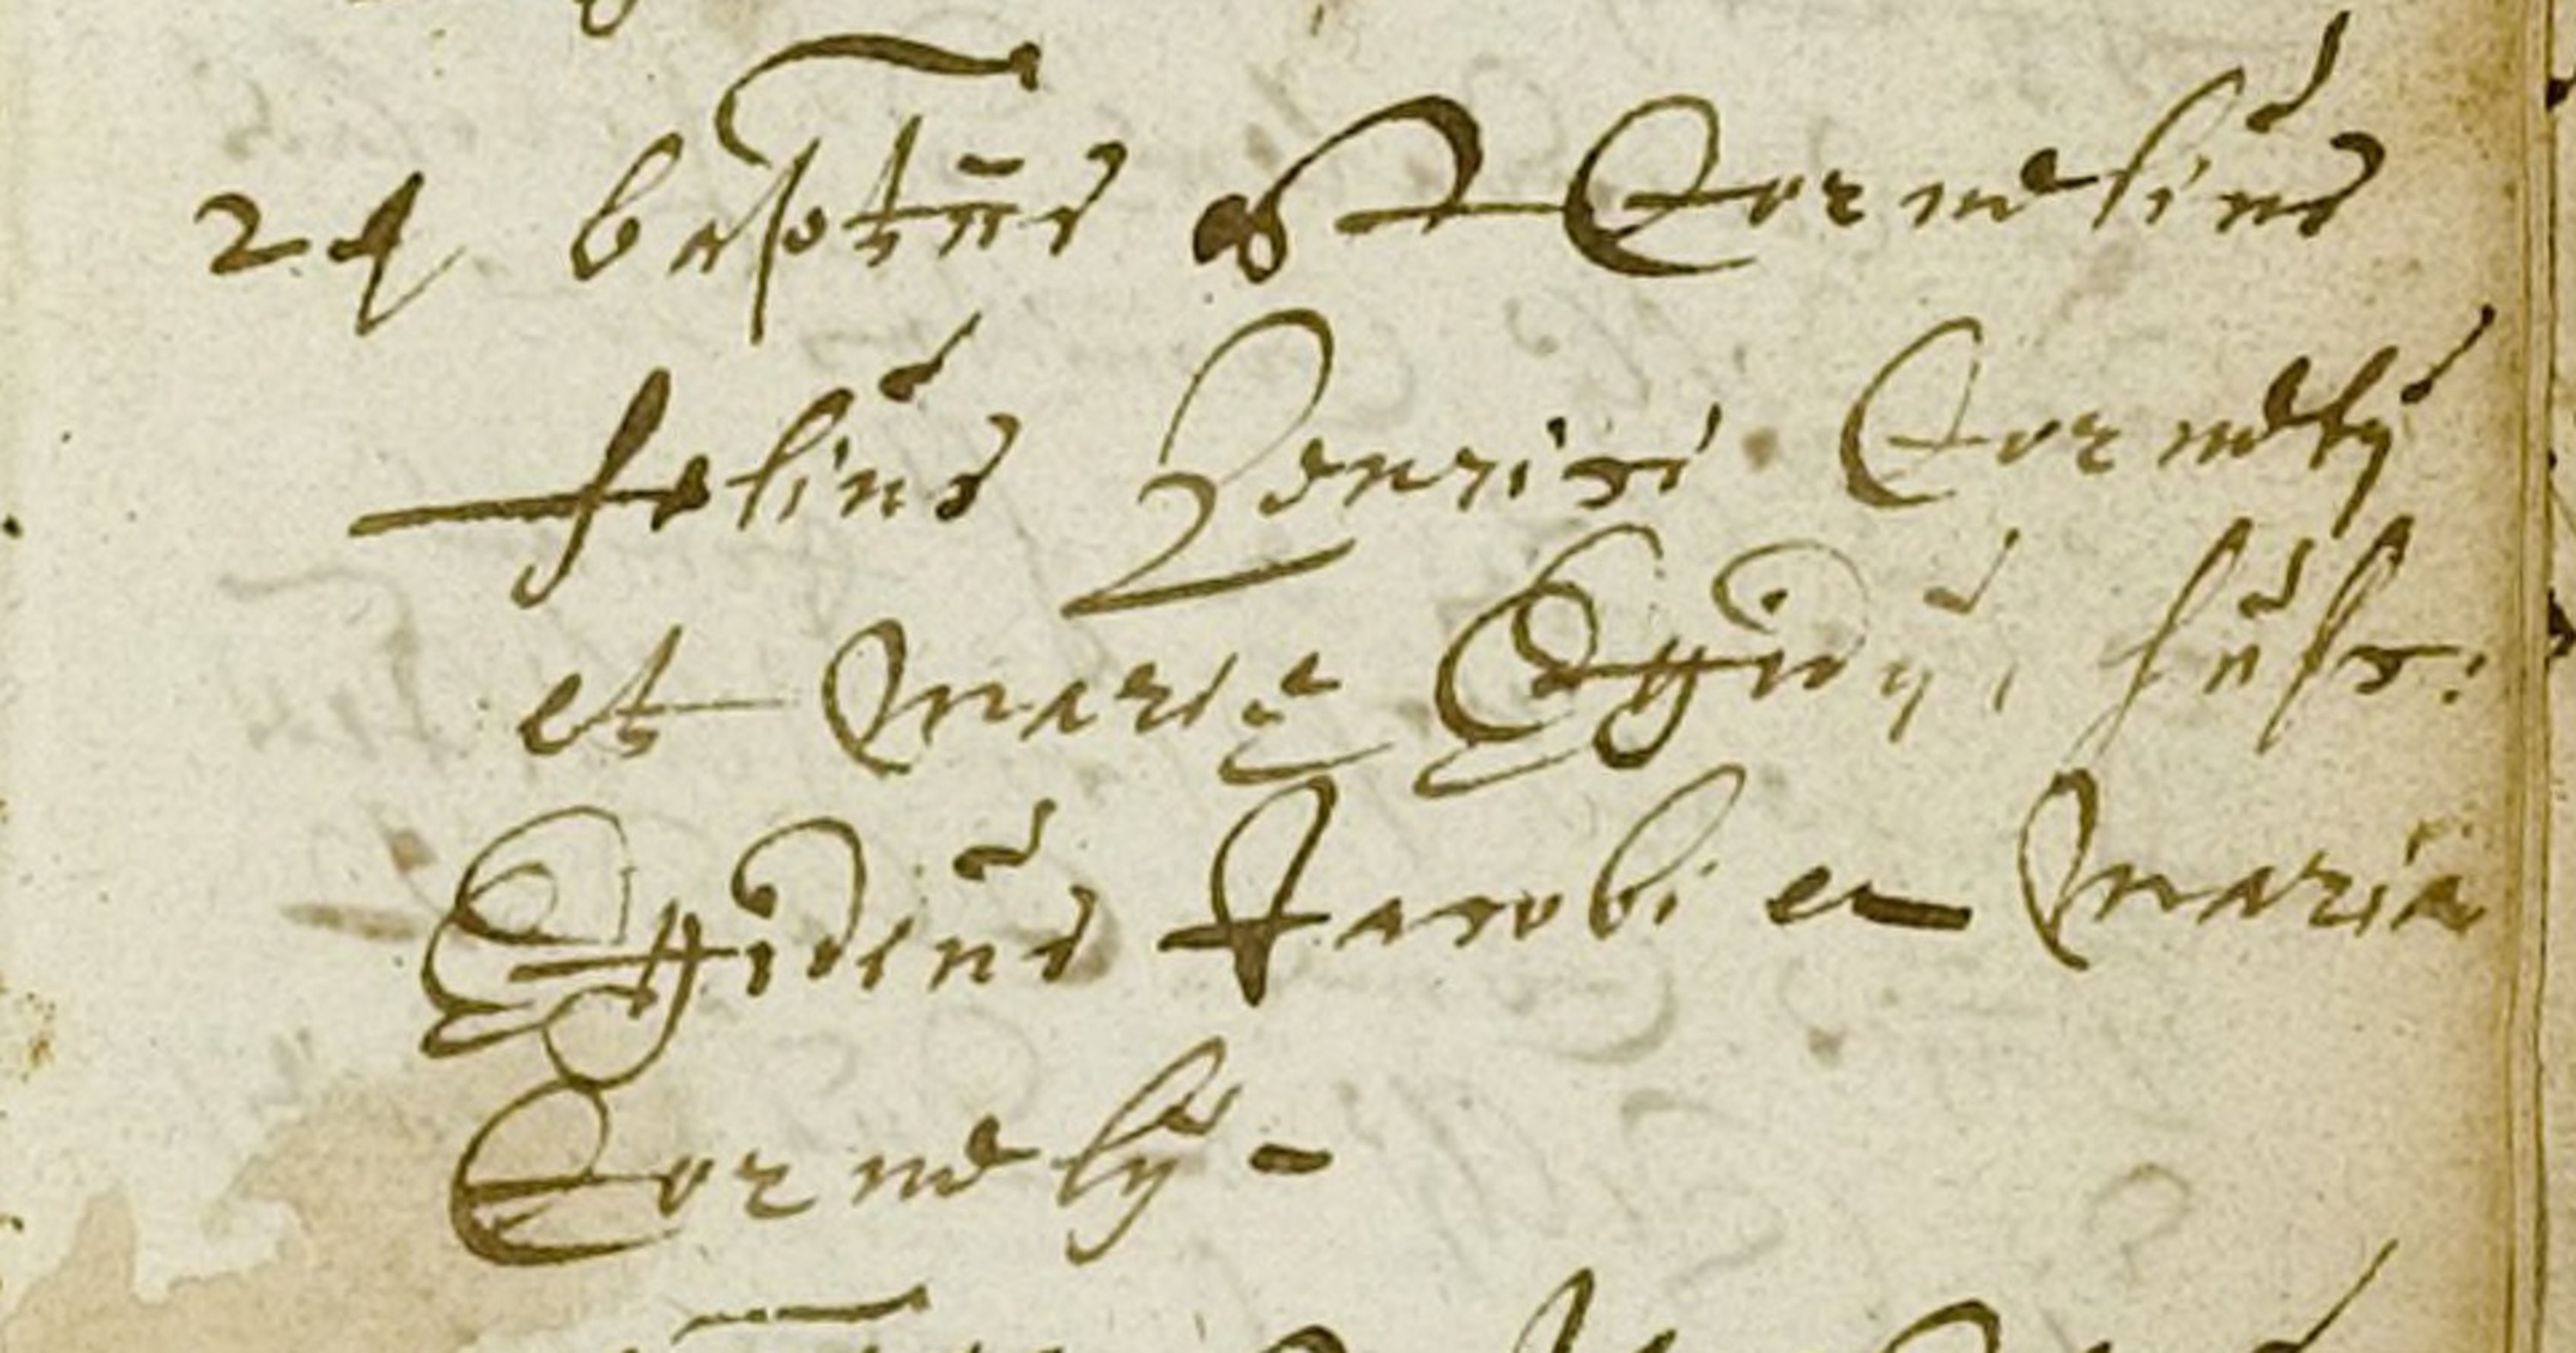 24 baptūs est Cornelius
filius Henrici Cornelij
et Mariæ Egidij, susc:
Egidius Jacobi et Maria
Cornelij -